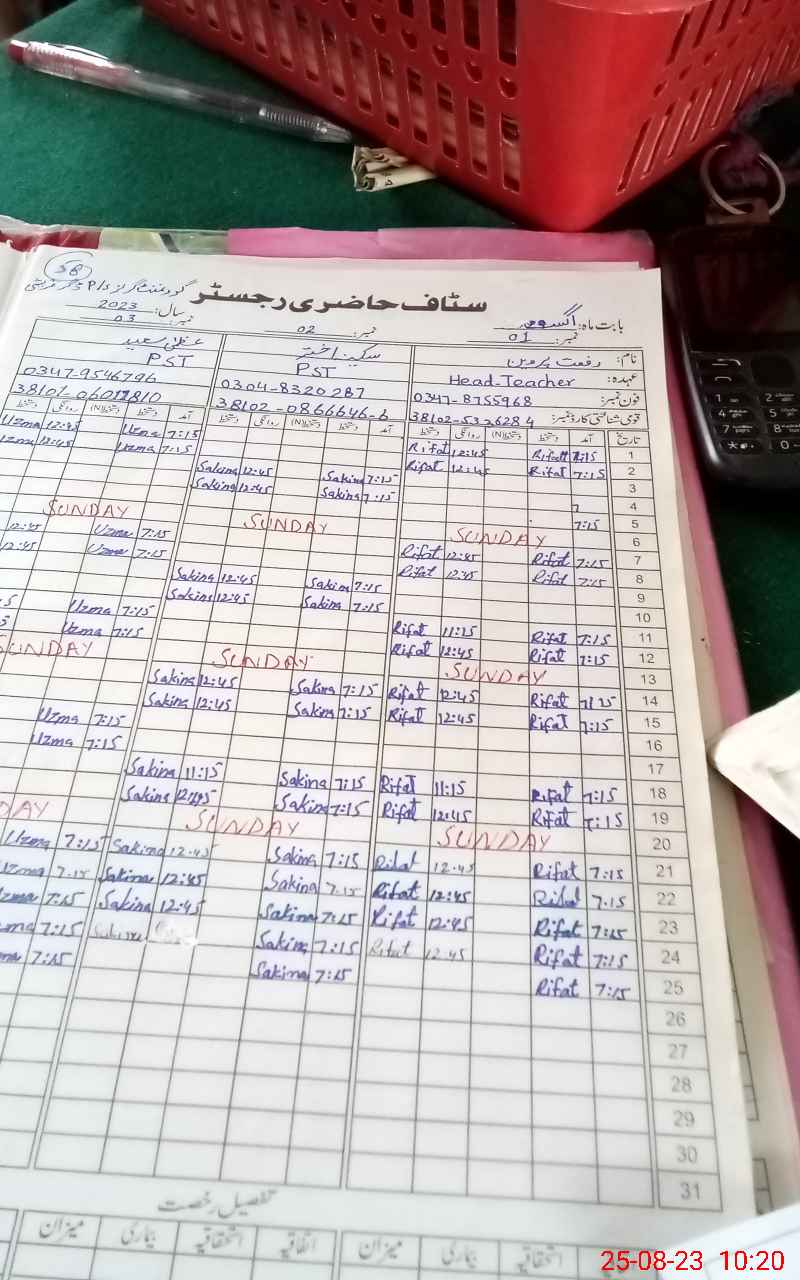 58
سٹاف حاضری رجسٹر
بابت ماہ: اگست
سال: 2023
نمبر: 01
نمبر: 02
نمبر: 03
نام: رفعت پروین
سکینہ اختر
عظمیٰ سعید
عہدہ: Head-Teacher
PST
PST
فون نمبر: 0347-8755968
0304-8320287
0347-9546796
قومی شناختی کارڈ نمبر: 38102-5326284
38102-0866646-6
تاریخ آمد دستخط دستخط(N) روانگی دستخط آمد دستخط دستخط(N) روانگی دستخط آمد دستخط دستخط(N) روانگی دستخط
1 7:15 Rifat 12:45 Rifat 7:15 Uzma 12:45 Uzma
2 7:15 Rifat 12:45 Rifat 7:15 Uzma 12:45
3 Sakina 7:15 Sakina 12:45
4 Sakina 7:15 Sakina 12:45
5 7:15
6 SUNDAY SUNDAY SUNDAY
7 7:15 Rifat 12:45 Rifat 7:15 Uzma 12:45
8 7:15 Rifat 12:45 Rifat 7:15 Uzma 12:45
9 7:15 Sakina 12:45 Sakina
10 7:15 Sakina 12:45 Sakina
11 7:15 Rifat 11:15 Rifat 7:15 Uzma
12 7:15 Rifat 12:45 Rifat 7:15 Uzma
13 SUNDAY SUNDAY SUNDAY
14 Rifat 12:45 Rifat 7:15 Sakina 12:45 Sakina
15 7:15 Rifat 12:45 Rifat 7:15 Sakina 12:45 Sakina 7:15 Uzma
16 7:15 Uzma
17
18 7:15 Rifat 11:15 Rifat 7:15 Sakina 11:15 Sakina
19 7:15 Rifat 12:45 Rifat 7:15 Sakina 12:45 Sakina
20 SUNDAY SUNDAY
21 7:15 Rifat 12:45 Rifat 7:15 Sakina 12:45 Sakina 7:15 Uzma
22 7:15 Rifat 12:45 Rifat 7:15 Sakina 12:45 Sakina 7:15 Uzma
23 7:15 Rifat 12:45 Rifat 7:15 Sakina 12:45 Sakina 7:15
24 7:15 Rifat 12:45 Rifat 7:15 Sakina 7:15
25 7:15 Rifat 7:15 Sakina 7:15
26
27
28
29
30
31
تفصیل رخصت
اتفاقیہ استحقاقیہ بیماری میزان اتفاقیہ استحقاقیہ بیماری میزان
25-08-23 10:20